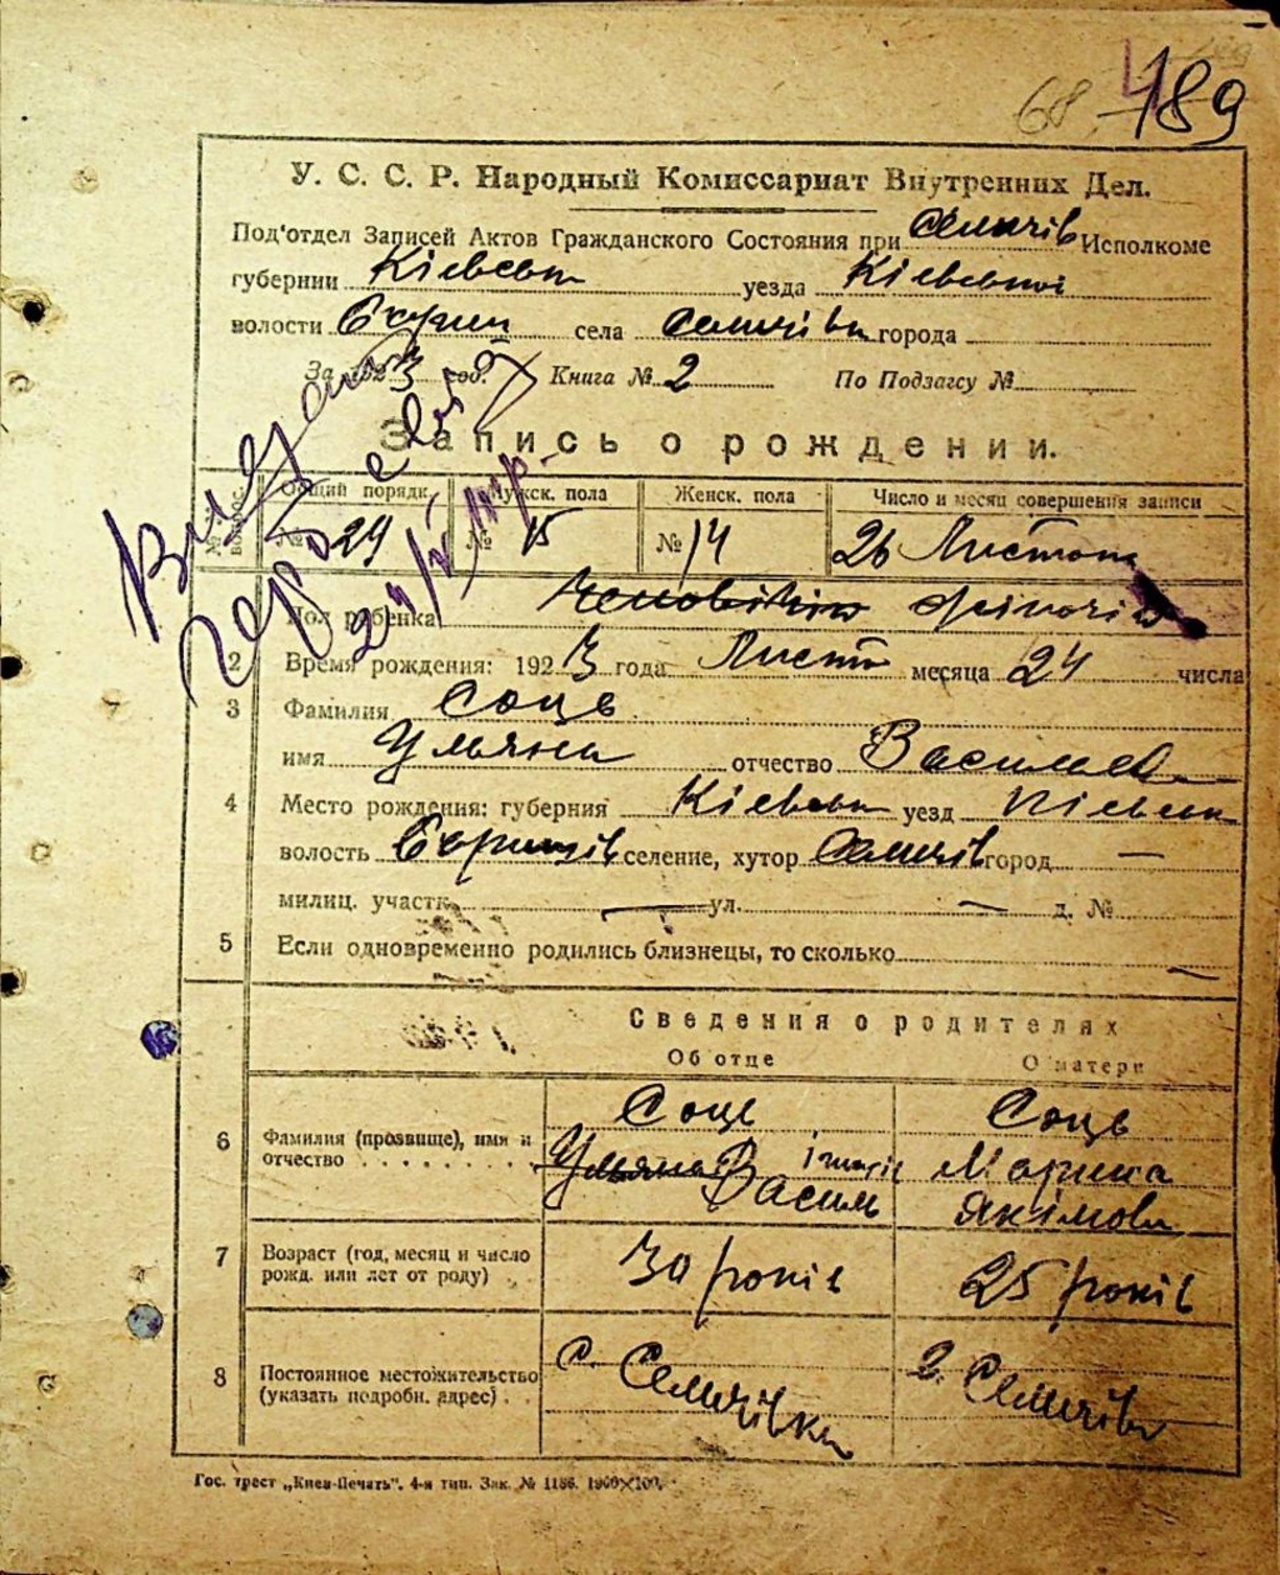 68 189
У. С. С. Р. Народный Комиссариат Внутренних Дел.
Под'отдел Записей Актов Гражданского Состояния при Семичів Исполкоме
губернии Кіевська уезда Кіевської
волости села Семичівка города
За 1923 год. Книга № 2 По Подзагсу №
Запись о рождении.
№№ вопрос. Общий порядк. Мужск. пола Женск. пола Число и месяц совершения записи
№ 29 № 15 № 14 26 Листопа
Пол ребенка жіночій
2 Время рождения: 1923 года Лист месяца 24 числа
3 Фамилия Соць
имя Уляна отчество Васильев
4 Место рождения: губерния Кіевськ уезд Кіевськ
волость селение, хутор Семичів город —
милиц. участк. — ул. — д. №
5 Если одновременно родились близнецы, то сколько —
Сведения о родителях
Об отце О матери
6 Фамилия (прозвище), имя и отчество Соць Соць
Василь Марина
Якімовн
7 Возраст (год, месяц и число рожд. или лет от роду) 30 років 25 років
8 Постоянное местожительство (указать подробн. адрес) с. Семичівка с. Семичівк
Гос. трест „Киев-Печать". 4-я тип. Зак. № 1186. 1900×100.